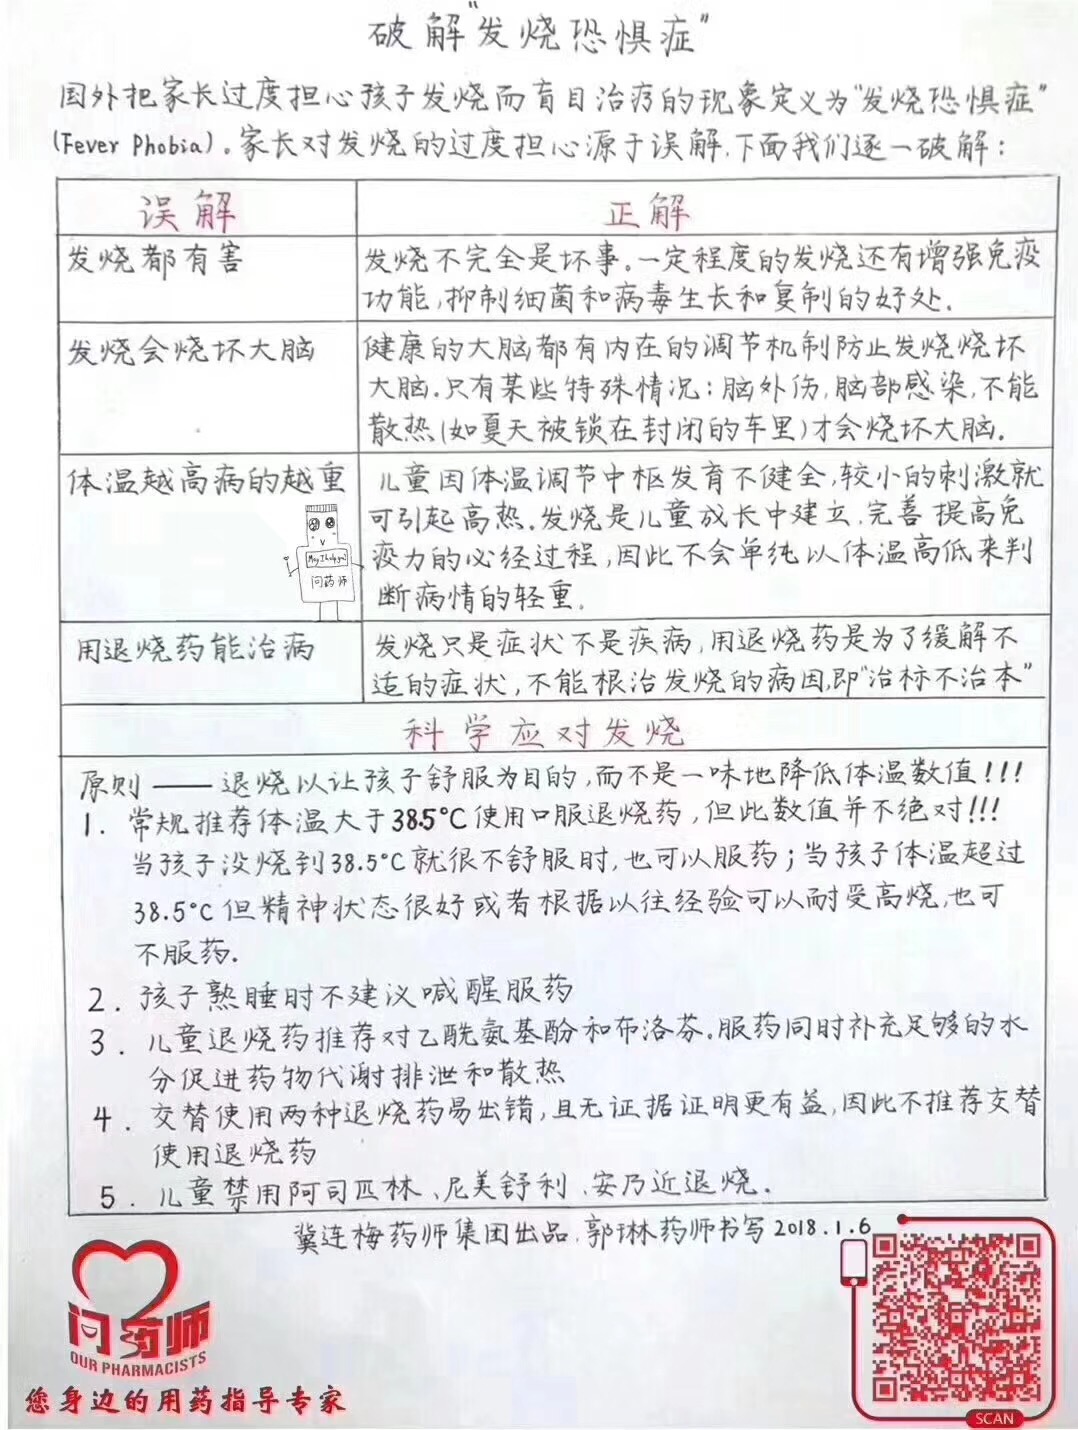 破解"发烧恐惧症"
国外把家长过度担心孩子发烧而盲目治疗的现象定义为"发烧恐惧症"
(Fever Phobia)。家长对发烧的过度担心源于误解,下面我们逐一破解:
误解
正解
发烧都有害
发烧不完全是坏事。一定程度的发烧还有增强免疫
功能,抑制细菌和病毒生长和复制的好处.
发烧会烧坏大脑
健康的大脑都有内在的调节机制防止发烧烧坏
大脑.只有某些特殊情况:脑外伤,脑部感染,不能
散热(如夏天被锁在封闭的车里)才会烧坏大脑.
体温越高病的越重
儿童因体温调节中枢发育不健全,较小的刺激就
可引起高热.发烧是儿童成长中建立,完善提高免
疫力的必经过程,因此不会单纯以体温高低来判
断病情的轻重.
问药师
用退烧药能治病
发烧只是症状不是疾病,用退烧药是为了缓解不
适的症状,不能根治发烧的病因,即"治标不治本"
科学应对发烧
原则——退烧以让孩子舒服为目的,而不是一味地降低体温数值!!!
1. 常规推荐体温大于38.5°C使用口服退烧药,但此数值并不绝对!!!
当孩子没烧到38.5°C就很不舒服时,也可以服药;当孩子体温超过
38.5°C但精神状态很好或者根据以往经验可以耐受高烧,也可
不服药.
2. 孩子熟睡时不建议喊醒服药
3. 儿童退烧药推荐对乙酰氨基酚和布洛芬。服药同时补充足够的水
分促进药物代谢排泄和散热
4. 交替使用两种退烧药易出错,且无证据证明更有益,因此不推荐交替
使用退烧药
5. 儿童禁用阿司匹林、尼美舒利、安乃近退烧.
冀连梅药师集团出品,郭琳药师书写2018.1.6
问药师
OUR PHARMACISTS
您身边的用药指导专家
SCAN